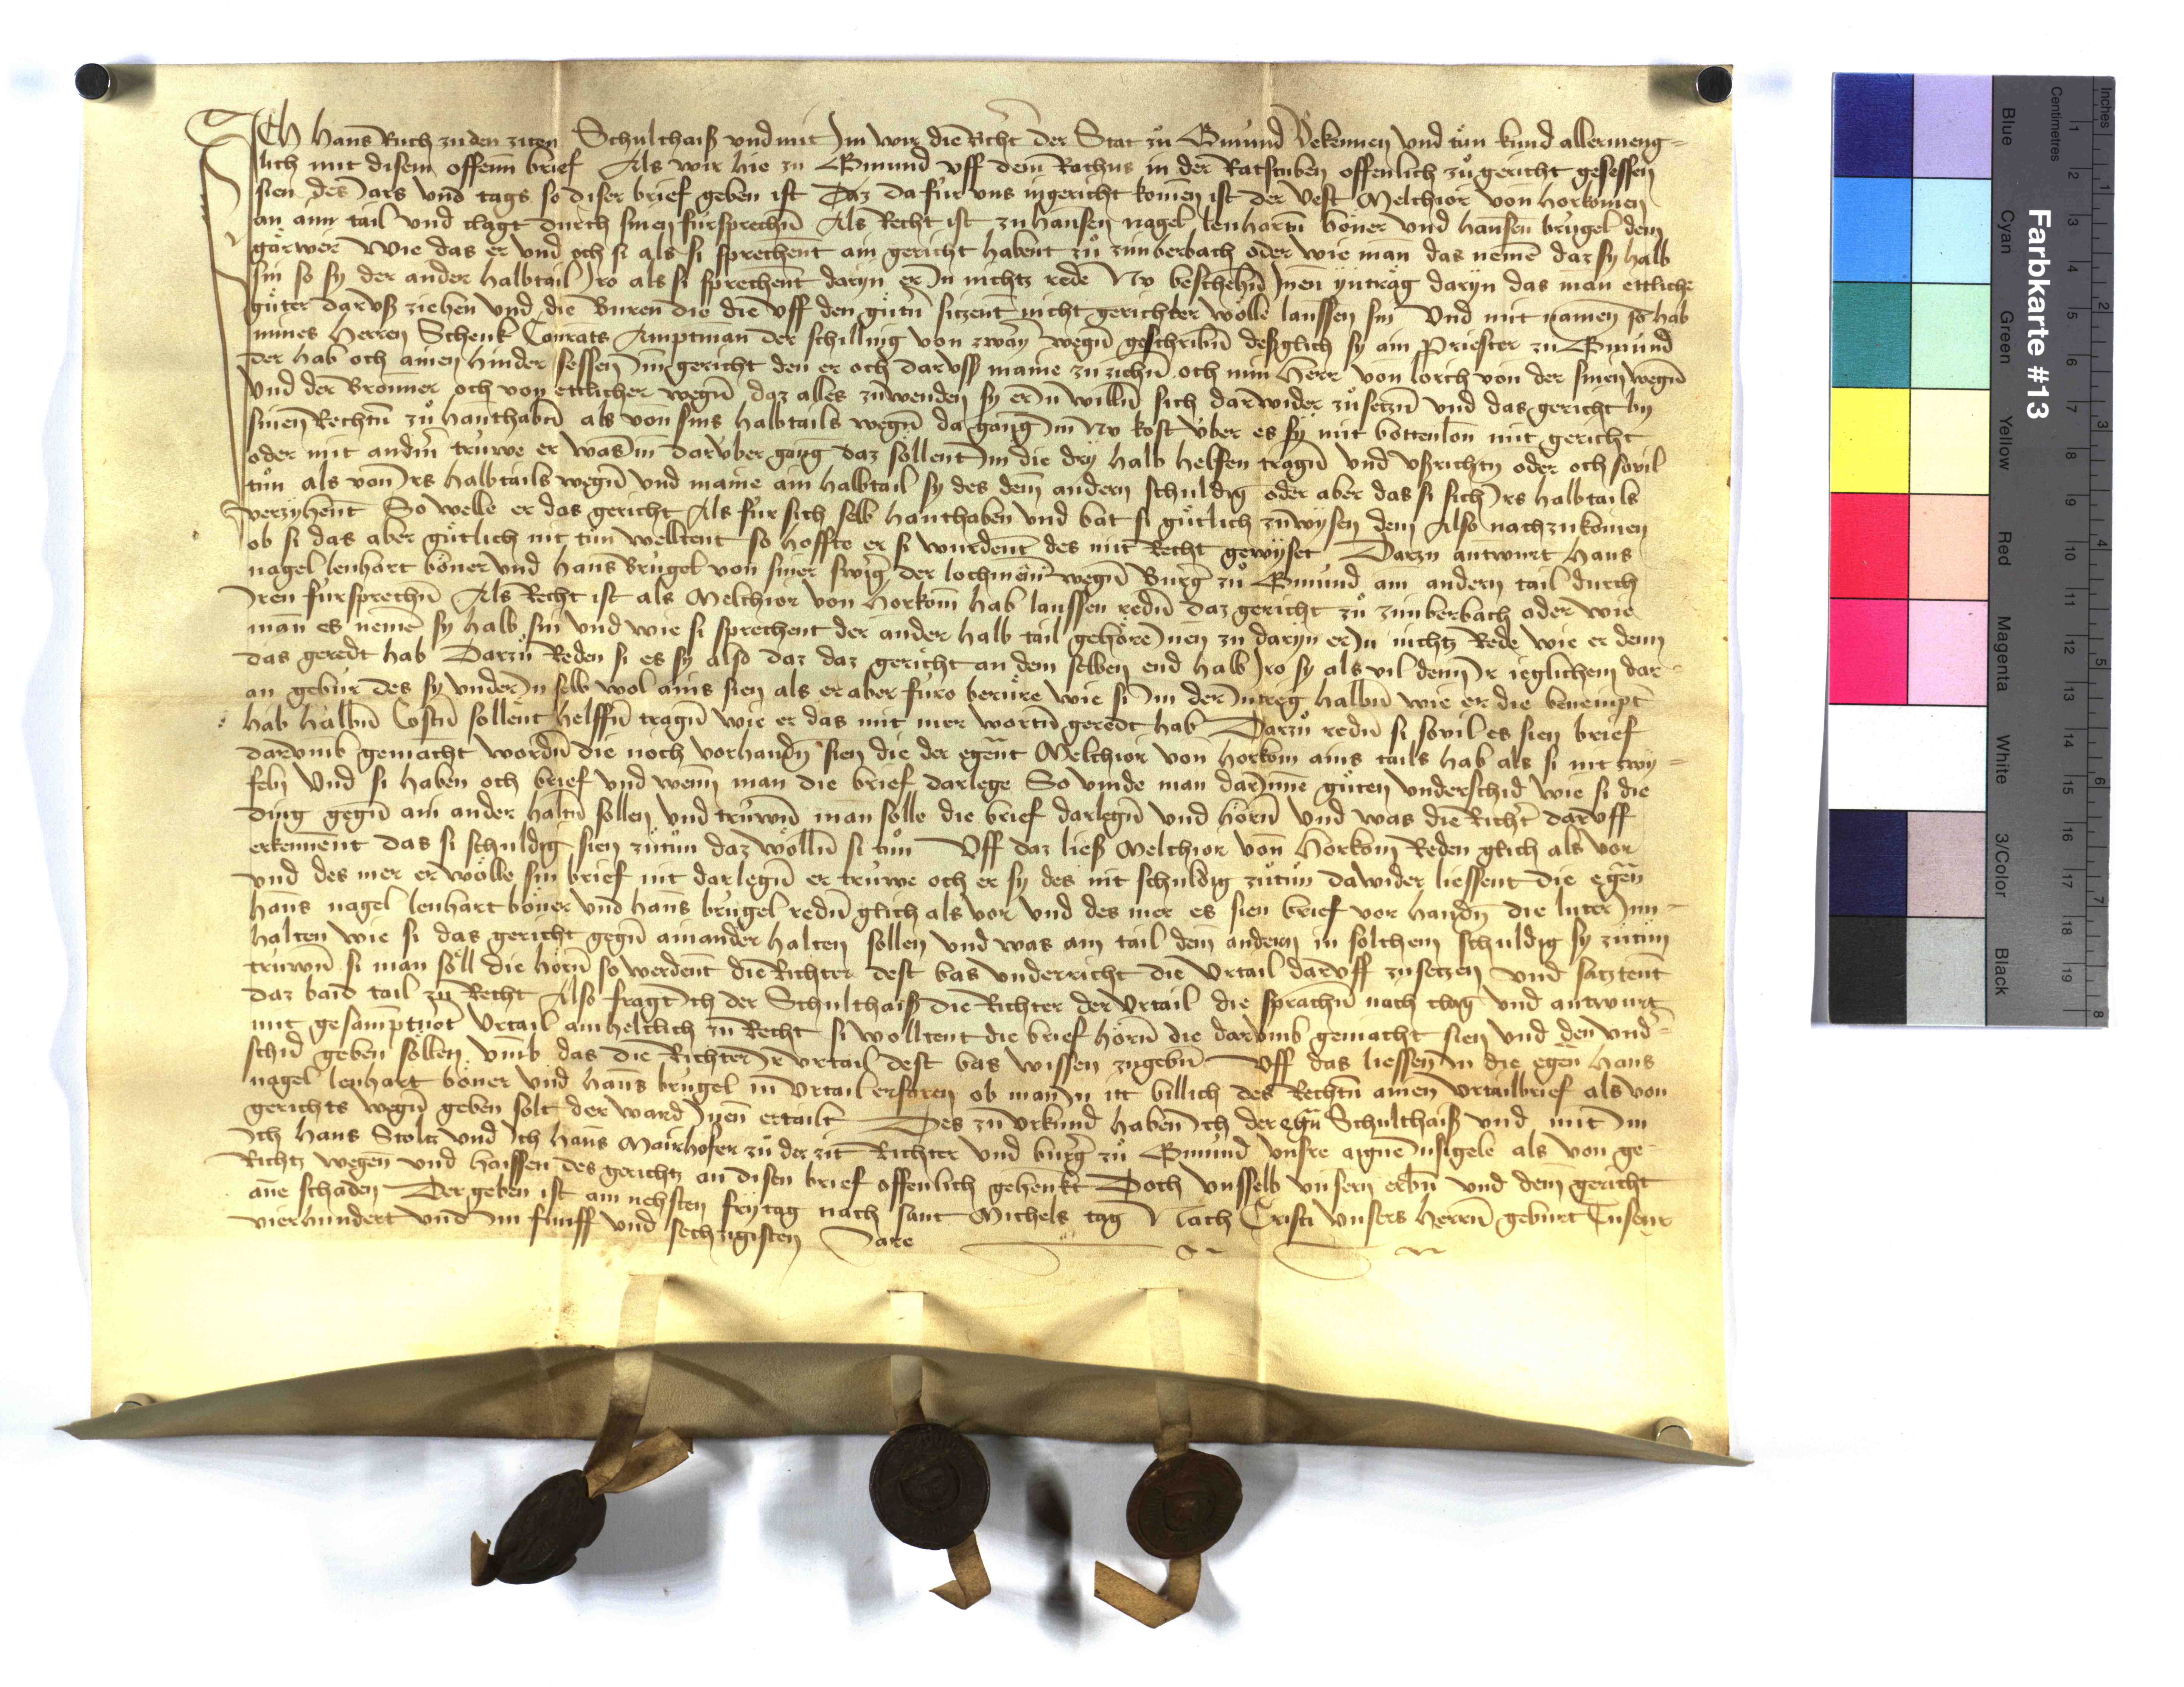 Ich Hans Ruch zu den ziten Schulthaiß und mit Im wir die Richter der Stat zů Gmünd Bekennen und tůn kund allermeng-
lich mit disem offenn brief Als wir hie zu Gmund uff dem Rathus in der Ratstuben offenlich zů gericht gesessen
sien des Jars und tags so diser brief geben ist Daz da für uns ingericht komen ist der Vest Melchior von horkomen
an aim tail und clagt durch sinen fürsprechn̄ Als Recht ist zu hansen nagel lenhartn̄ böner und hansen brügel dem
gärwer Wie das er und och si als si sprechent ain gericht habent zů zimberbach oder wie man das nemē daz sy halb
sin so sy der ander halbtail Iro als si sprechent daryn er In nichtz rede Nv beschehn̄ Inen yntråg daryn das man ettliche
gůter darvß ziehen und die Buren die die uff den gütn̄ sitzent nicht gerichter wölle laussen sin Und mit namen so hab
mines herren Schenk Conrats Amptman der schilling von zwåy wegn̄ geschribn̄ desglich sy ain Priester zu Gmünd
der hab och ainen hinder sessen im gericht den er och darvß maine zu ziehn̄ och min Herr von lorch von der sinen wegn̄
und der Bronner och von ettlicher wegn̄ daz alles zůwenden sy er In willn̄ sich darwider zů setzn̄ und das gericht by
sinen Rechtn̄ zů hanthabn̄ als von sins halbtails wegn̄ da gang im Nv kost über es sy mit bottenlon mit gericht
oder mit andn̄ trüwe er was im darüber gang daz söllent im die dry halb helfen tragn̄ und vßrichtn̄ oder och sovil
tůn als von Irs halbtails wegn̄ und maine ain halbtail sy des dem andern schuldig oder aber das si sich Irs halbtails
verzyhent So welle er das gericht Als für sich selb hanthaben und bat si gůtlich zůwysen dem Also nachzukomen
ob si das aber gůtlich nit tůn welltent so hoffte er si wurdent des mit Recht gewyset Darzu antwurt Hans
nagel lenhart böner und hans Brügel von siner swig̃ der lochmenn̄ wegn̄ Burg̃ zů Gmünd am andern tail durch
Iren fürsprechn̄ Als Recht ist als Melchior von horkom̄ hab laussen redn̄ daz gericht zů zimberbach oder wie
man es nemē sy halb sin und wie si sprechent der ander halb tail gehöre Inen zu daryn er In nichtz Rede wie er denn
das geredt hab Darzů Reden si es sy also daz daz gericht an dem selben end halb Iro sy als vil denn Ir ieglichem dar-
an gebür des sy under In selb wol ains sien als er aber füro berůre wie si Im der Intreg halbn̄ wie er die beneimpt
hab halbn̄ Costn̄ sollent helffn̄ tragn̄ wie er das mit mer wortn̄ geredt hab Darzů redn̄ si sovil es sien brief
darumb gemacht wordn̄ die noch vorhandn̄ sien die der egent̄ Melchior von horkom ains tails hab als si nit zwy-
feln Und si haben och brief und wenn man die brief darlege So vinde man dar Inne gůten underschid wie si die
ding gegn̄ ain ander haltn̄ sollen und trüwn̄ man sölle die brief darlegn̄ und hörn̄ und was die Richt̃ darvff
erkennent das si schuldig sien zůtůn daz wölln̄ si tůn Vff daz ließ Melchior von horkom Reden glich als vor
und des mer er wölle sin brief nit darlegn̄ er trüwe och er sy des nit schuldig zůtůn dawider liessent die egen̄
hans nagel lenhart böner und hans brügel redn̄ glich als vor und des mer es sien brief vor handn̄ die luter Inn-
halten wie si das gericht gegn̄ ainander halten söllen und was ain tail dem andern in solchem schuldig sy zůtůn
trüwn̄ si man söll die hörn̄ so werdent die Richter dest bas underricht die Vrtail darvff zusetzen und satztent
daz baid tail zu Recht Also fragt Ich der Schulthaiß die Richter der Vrtail die sprachn̄ nach clag und antwurt
mit gesamptnot Vrtail ainhellclich zu Recht si wolltent die brief hörn̄ die darumb gemacht sien und den und̃-
schid geben söllen umb das die Richter Ir urtail dest bas wissen zugebn̄ Vff das liessen In die egen̄ Hans
nagel lenhart böner und hans brügel in Vrtail erfaren ob man In itt billich des Rechtn̄ ainen Vrtailbrief als von
gerichts wegn̄ geben sölt der ward Inen ertailt Des zu Vrkund haben Ich der egn̄ Schulthaiß und mit Im
Ich Hans Stoltz und Ich hans Mairhofer zů der zit Richter und burg̃ zů Gmünd unsre aigne Insigele als von ge-
Richtz wegen und haissen des gerichtz an disen brief offenlich gehenkt Doch unsselb unsern erbn̄ und dem gericht
ane schaden Der geben ist am nehsten frytag nach sant Michels tag Nach Cristi unsers Herrn̄ geburt Tusent
vierhundert und im funff und sechzigisten Jare
Farbkarte #13
Inches
Centimetres
1 2 3 4 5 6 7 8
1 2 3 4 5 6 7 8 9 10 11 12 13 14 15 16 17 18 19
Blue Cyan Green Yellow Red Magenta White 3/Color Black